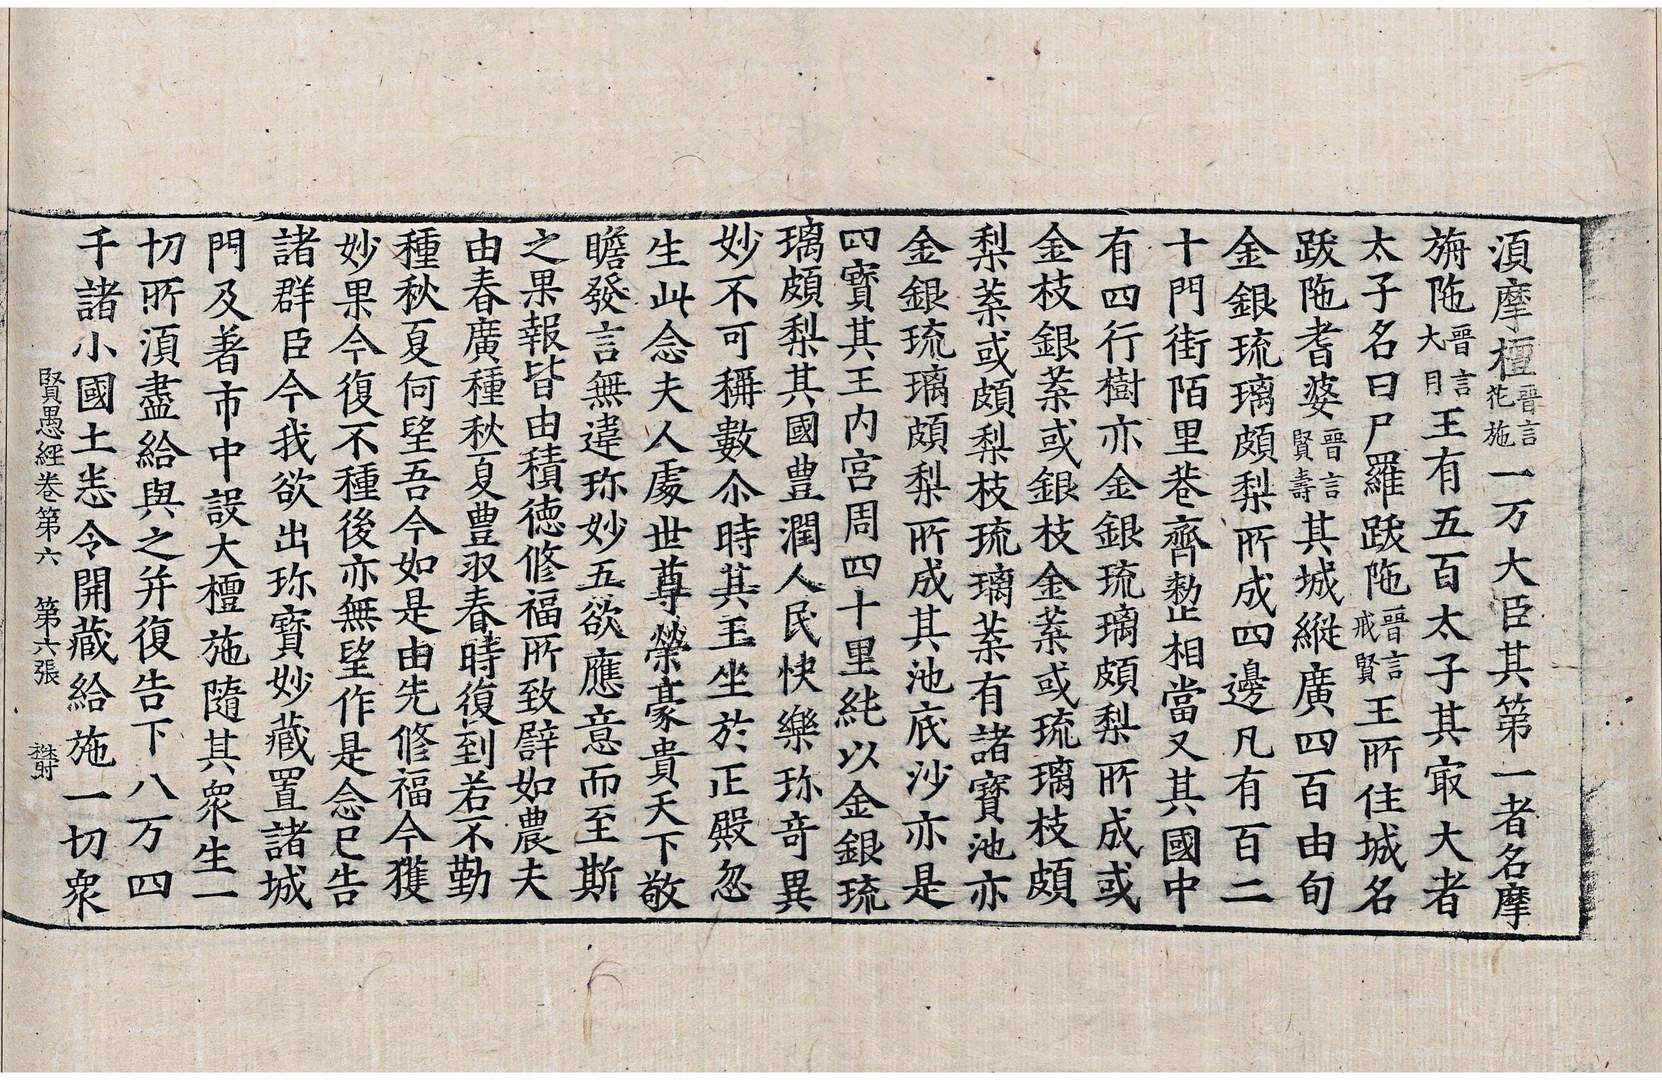 湏摩檀晉言花施一万大臣其第一者名摩
旃陁晉言大月王有五百太子其㝡大者
太子名曰尸羅跋陁晉言戒賢王所住城名
跋陁耆婆晉言賢壽其城縱廣四百由旬
金銀琉璃頗梨所成四邊凡有百二
十門街陌里巷齊整相當又其國中
有四行樹亦金銀琉璃頗梨所成或
金枝銀葉或銀枝金葉或琉璃枝頗
梨葉或頗梨枝琉璃葉有諸寶池亦
金銀琉璃頗梨所成其池底沙亦是
四寶其王內宮周四十里純以金銀琉
璃頗梨其國豊潤人民快樂珎竒異
妙不可稱數尒時其王坐於正殿忽
生此念夫人處世尊榮豪貴天下敬
瞻發言無違珎妙五欲應意而至斯
之果報皆由積德修福所致譬如農夫
由春廣種秋夏豊収春時復到若不勤
種秋夏何望吾今如是由先修福今獲
妙果今復不種後亦無望作是念已告
諸群臣今我欲出珎寶妙藏置諸城
門及著市中設大檀施隨其衆生一
切所湏盡給與之并復告下八万四
千諸小國土悉令開藏給施一切衆
賢愚經卷第六 第六張